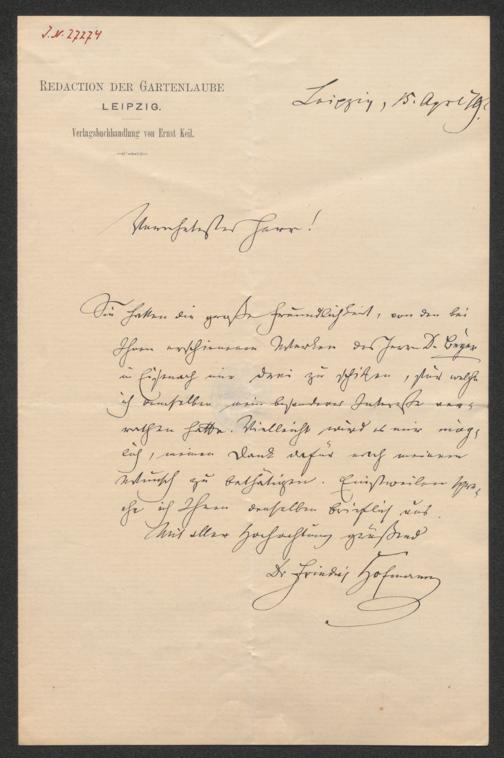 J.N. 27274
REDACTION DER GARTENLAUBE
LEIPZIG.
Verlagsbuchhandlung von Ernst Keil.
Leipzig, 15. April
Verehrtester Herr!
Sie hatten die große Freundlichkeit, von den bei
Ihnen erschienenen Werken des Herrn Dr.
in Eisenach mir drei zu schicken, für welche
ich demselben mein besonderes Interesse ver-
rathen hatte. Vielleicht wird es mir mög-
lich, meinen Dank dafür nach meinem
Wunsch zu bethätigen. Einstweilen spre-
che ich Ihnen denselben brieflich aus.
Mit aller Hochachtung grüßend
Dr Friedrich Hofmann